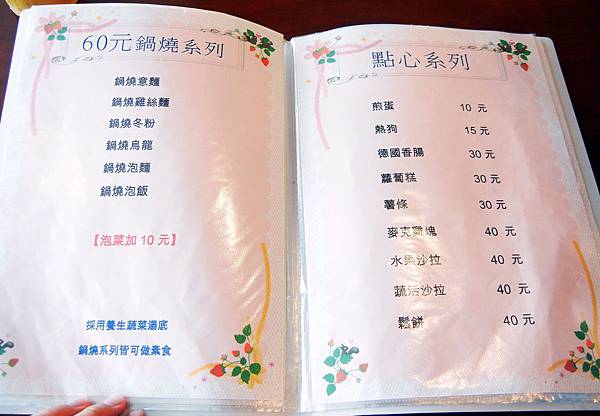 60元鍋燒系列
鍋燒意麵
鍋燒雞絲麵
鍋燒冬粉
鍋燒烏龍
鍋燒泡麵
鍋燒泡飯
【泡菜加 10 元】
採用養生蔬菜湯底
鍋燒系列皆可做素食
點心系列
煎蛋 10 元
熱狗 15 元
德國香腸 30 元
蘿蔔糕 30 元
薯條 30 元
麥克雞塊 40 元
水果沙拉 40 元
蔬活沙拉 40 元
鬆餅 40 元